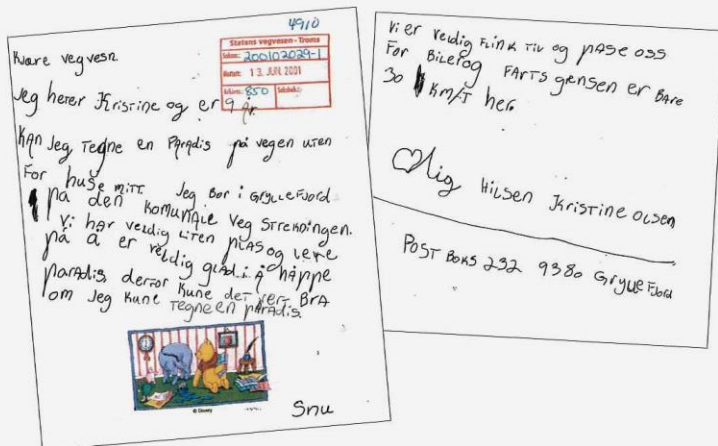 4910
Statens vegvesen - Troms
Saksnr.: 200102029-1
Mottatt: 13. JUN. 2001
Arkivnr.: 850 Saksbeh.:
Kjære vegvesn
Jeg heter Kristine og er 9 år.
KAN Jeg Tegne en Paradis på vegen uten
For huse mitt Jeg Bor i Gryllefjord
på den Komunale veg strekningen.
Vi har veldig Liten PLAS og leve
på å er veldig glad i å håppe
paradis, derfor Kune det vert BrA
om Jeg Kune Tegne en paradis
© Disney
Snu
Vi er veldig Flink Til og pAse oss
For Biler og FARTS grensen er BAre
30 Km/T her.
lig Hilsen Kristine Olsen
Post Boks 232 9380 Gryllefjord